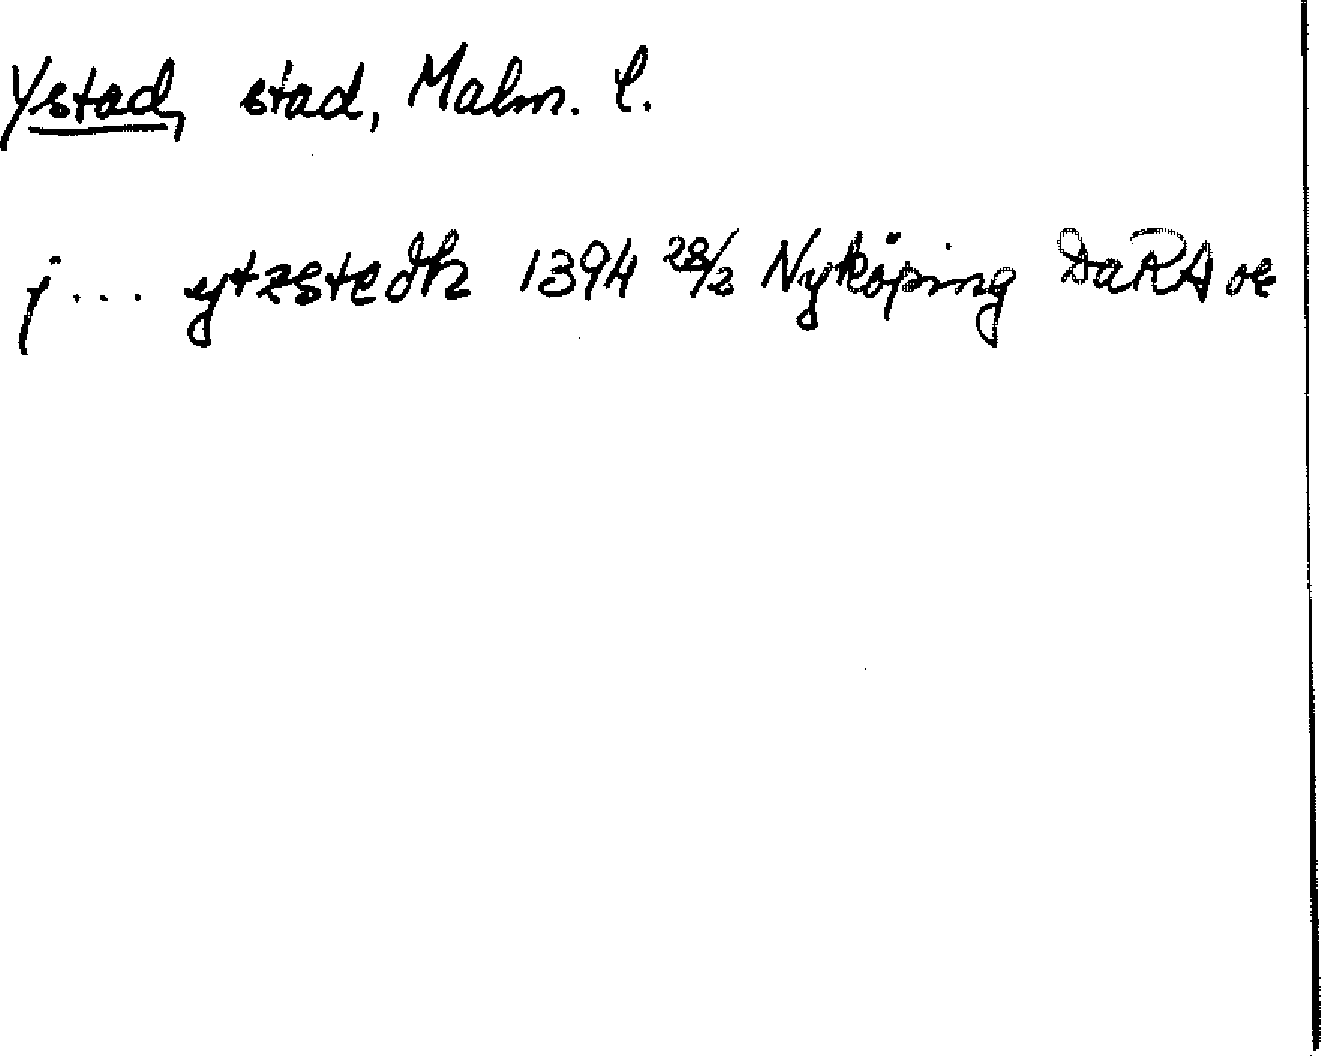 Ystad, stad, Malm. l.
j... ytzstedh 1394 28/2 Nyköping DaRA or